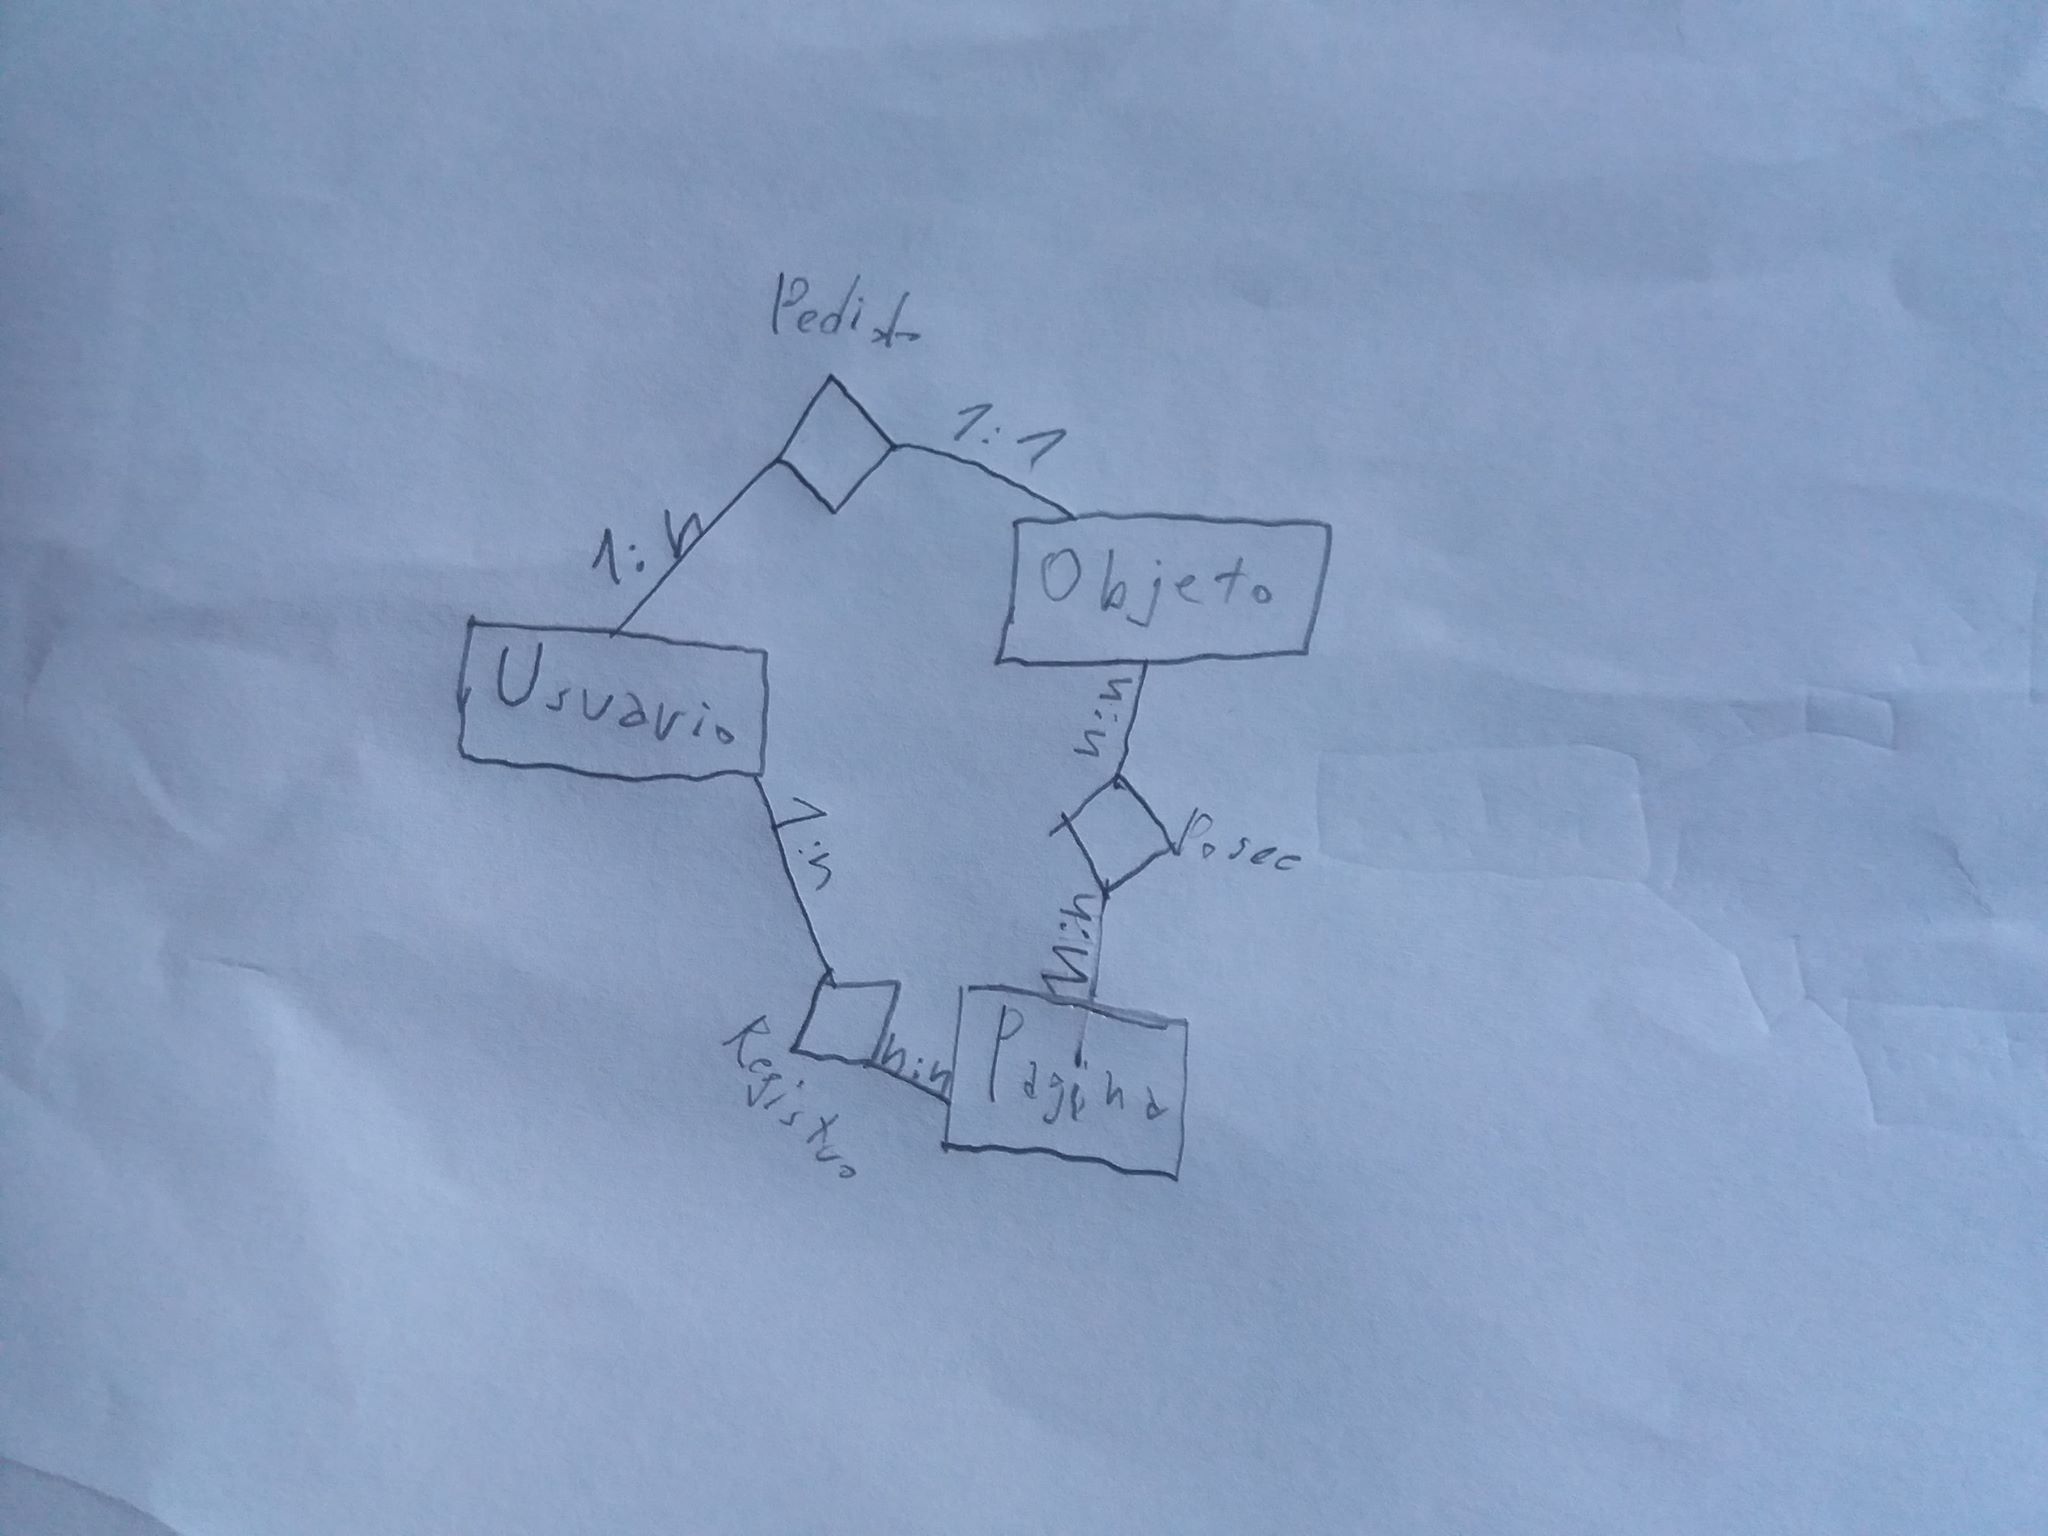 Pedido
1:1
1:n
Objeto
Usuario
n:n
1:n
Posee
n:n
n:n
Registro
Pagina